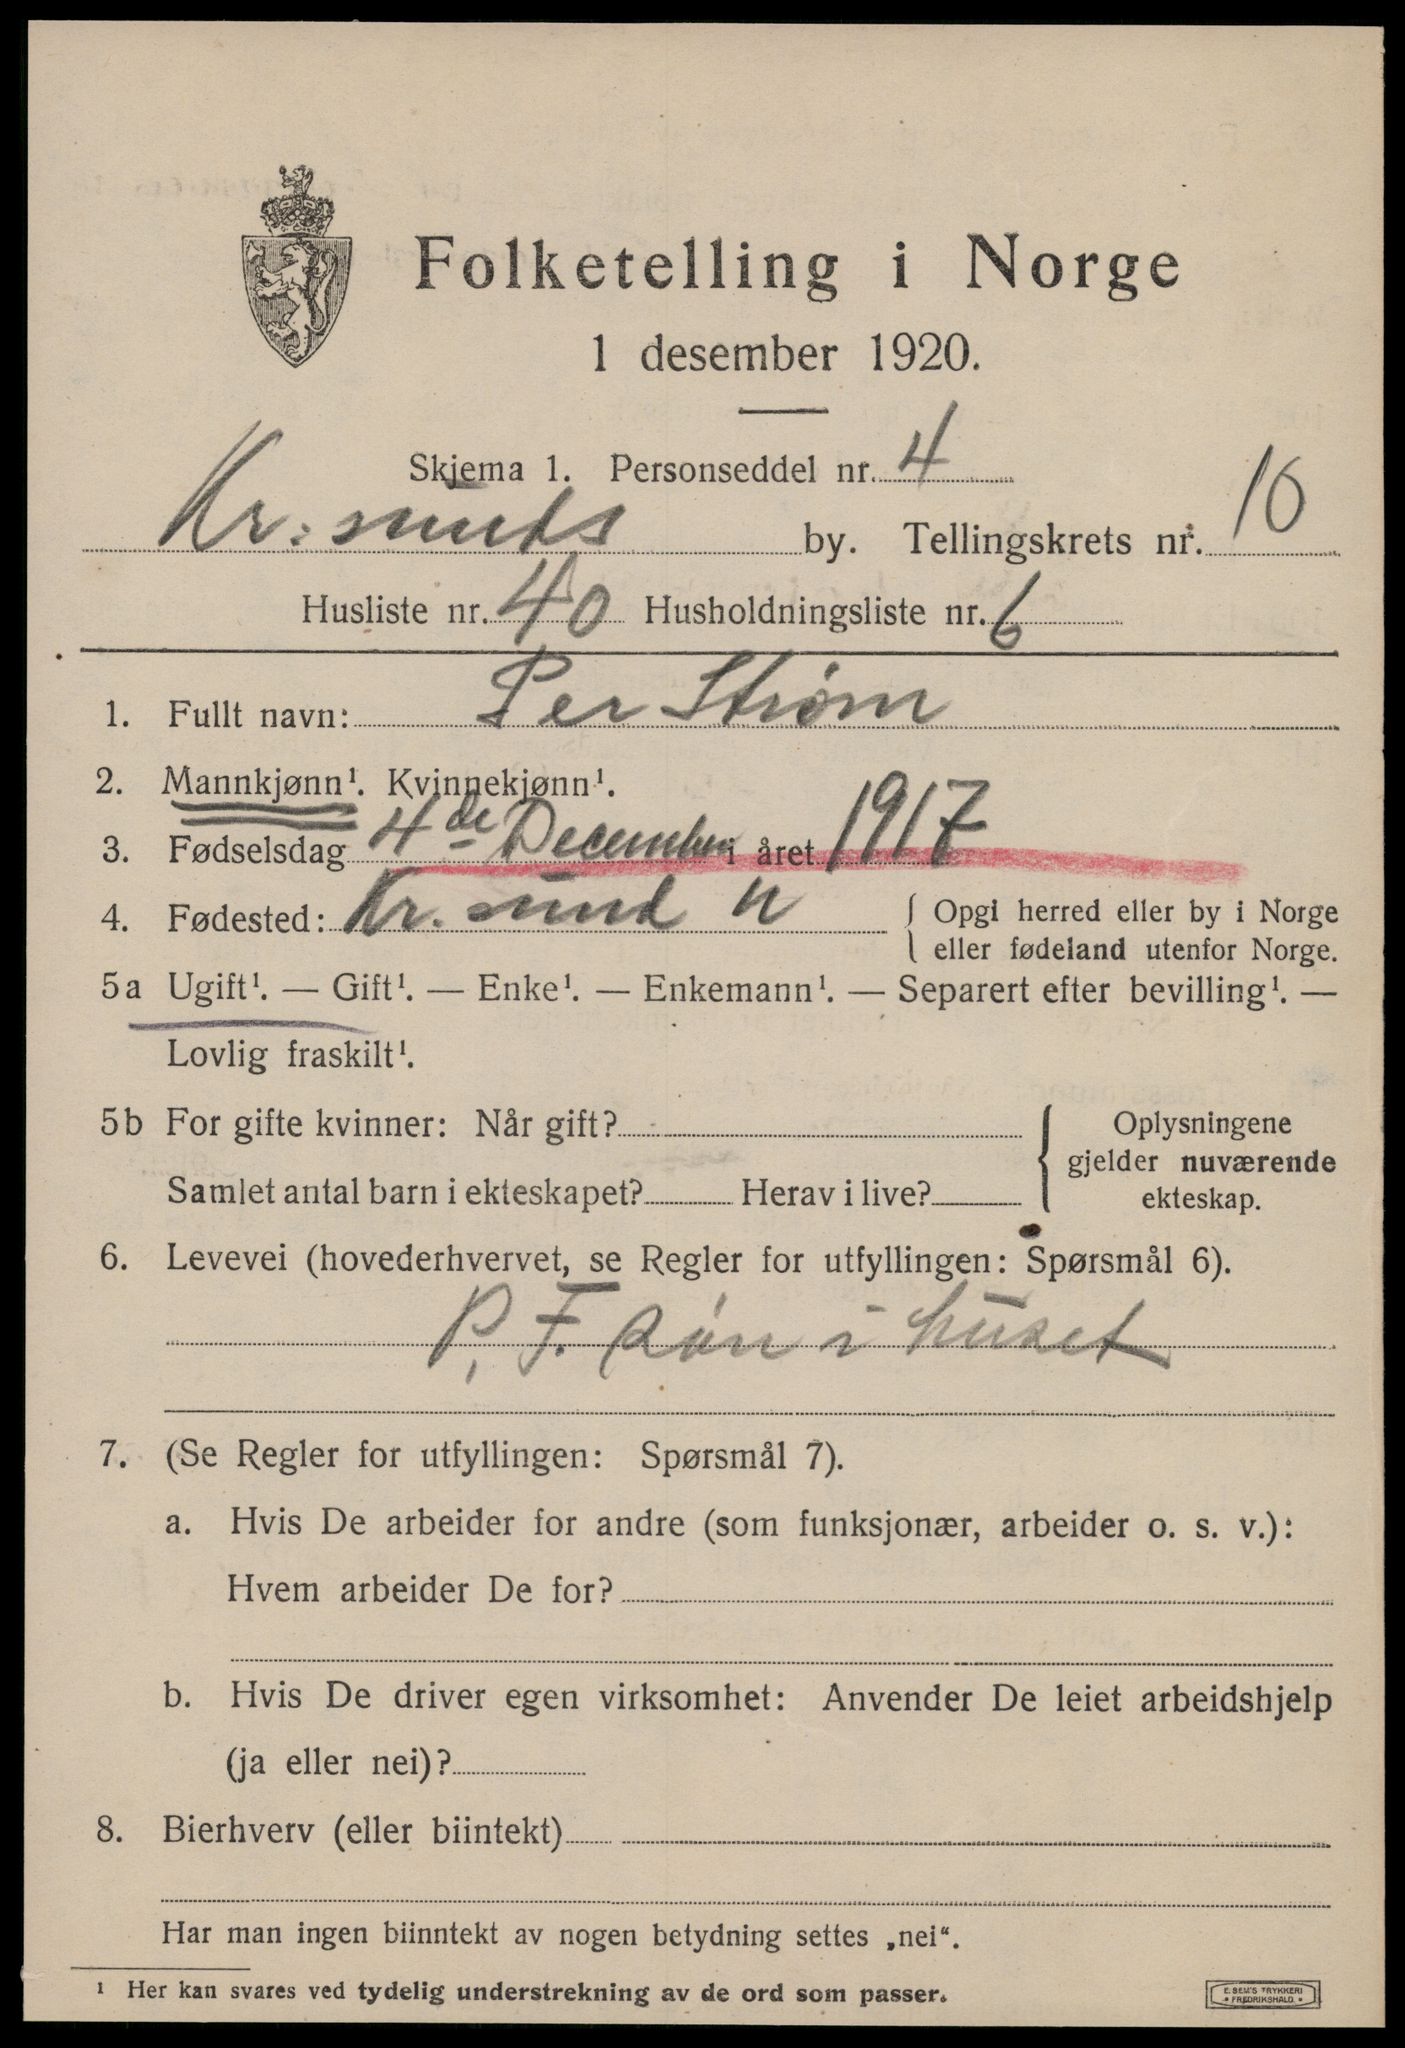 Folketelling i Norge
1 desember 1920.
Skjema 1. Personseddel nr. 4
Kr:sunds by. Tellingskrets nr. 10
Husliste nr. 40 Husholdningsliste nr. 6
1. Fullt navn: Per Strøm
2. Mannkjønn¹. Kvinnekjønn¹.
3. Fødselsdag 4de December i året 1917
4. Fødested: Kr. sund N { Opgi herred eller by i Norge
eller fødeland utenfor Norge.
5a Ugift¹. — Gift¹. — Enke¹. — Enkemann¹. — Separert efter bevilling¹. —
Lovlig fraskilt¹.
5b For gifte kvinner: Når gift? { Oplysningene
gjelder nuværende
Samlet antal barn i ekteskapet? Herav i live? ekteskap.
6. Levevei (hovederhvervet, se Regler for utfyllingen: Spørsmål 6).
P, F. søn i huset
7. (Se Regler for utfyllingen: Spørsmål 7).
a. Hvis De arbeider for andre (som funksjonær, arbeider o. s. v.):
Hvem arbeider De for?
b. Hvis De driver egen virksomhet: Anvender De leiet arbeidshjelp
(ja eller nei)?
8. Bierhverv (eller biintekt)
Har man ingen biinntekt av nogen betydning settes „nei“.
¹ Her kan svares ved tydelig understrekning av de ord som passer.
E. SEM'S TRYKKERI
FREDRIKSHALD.